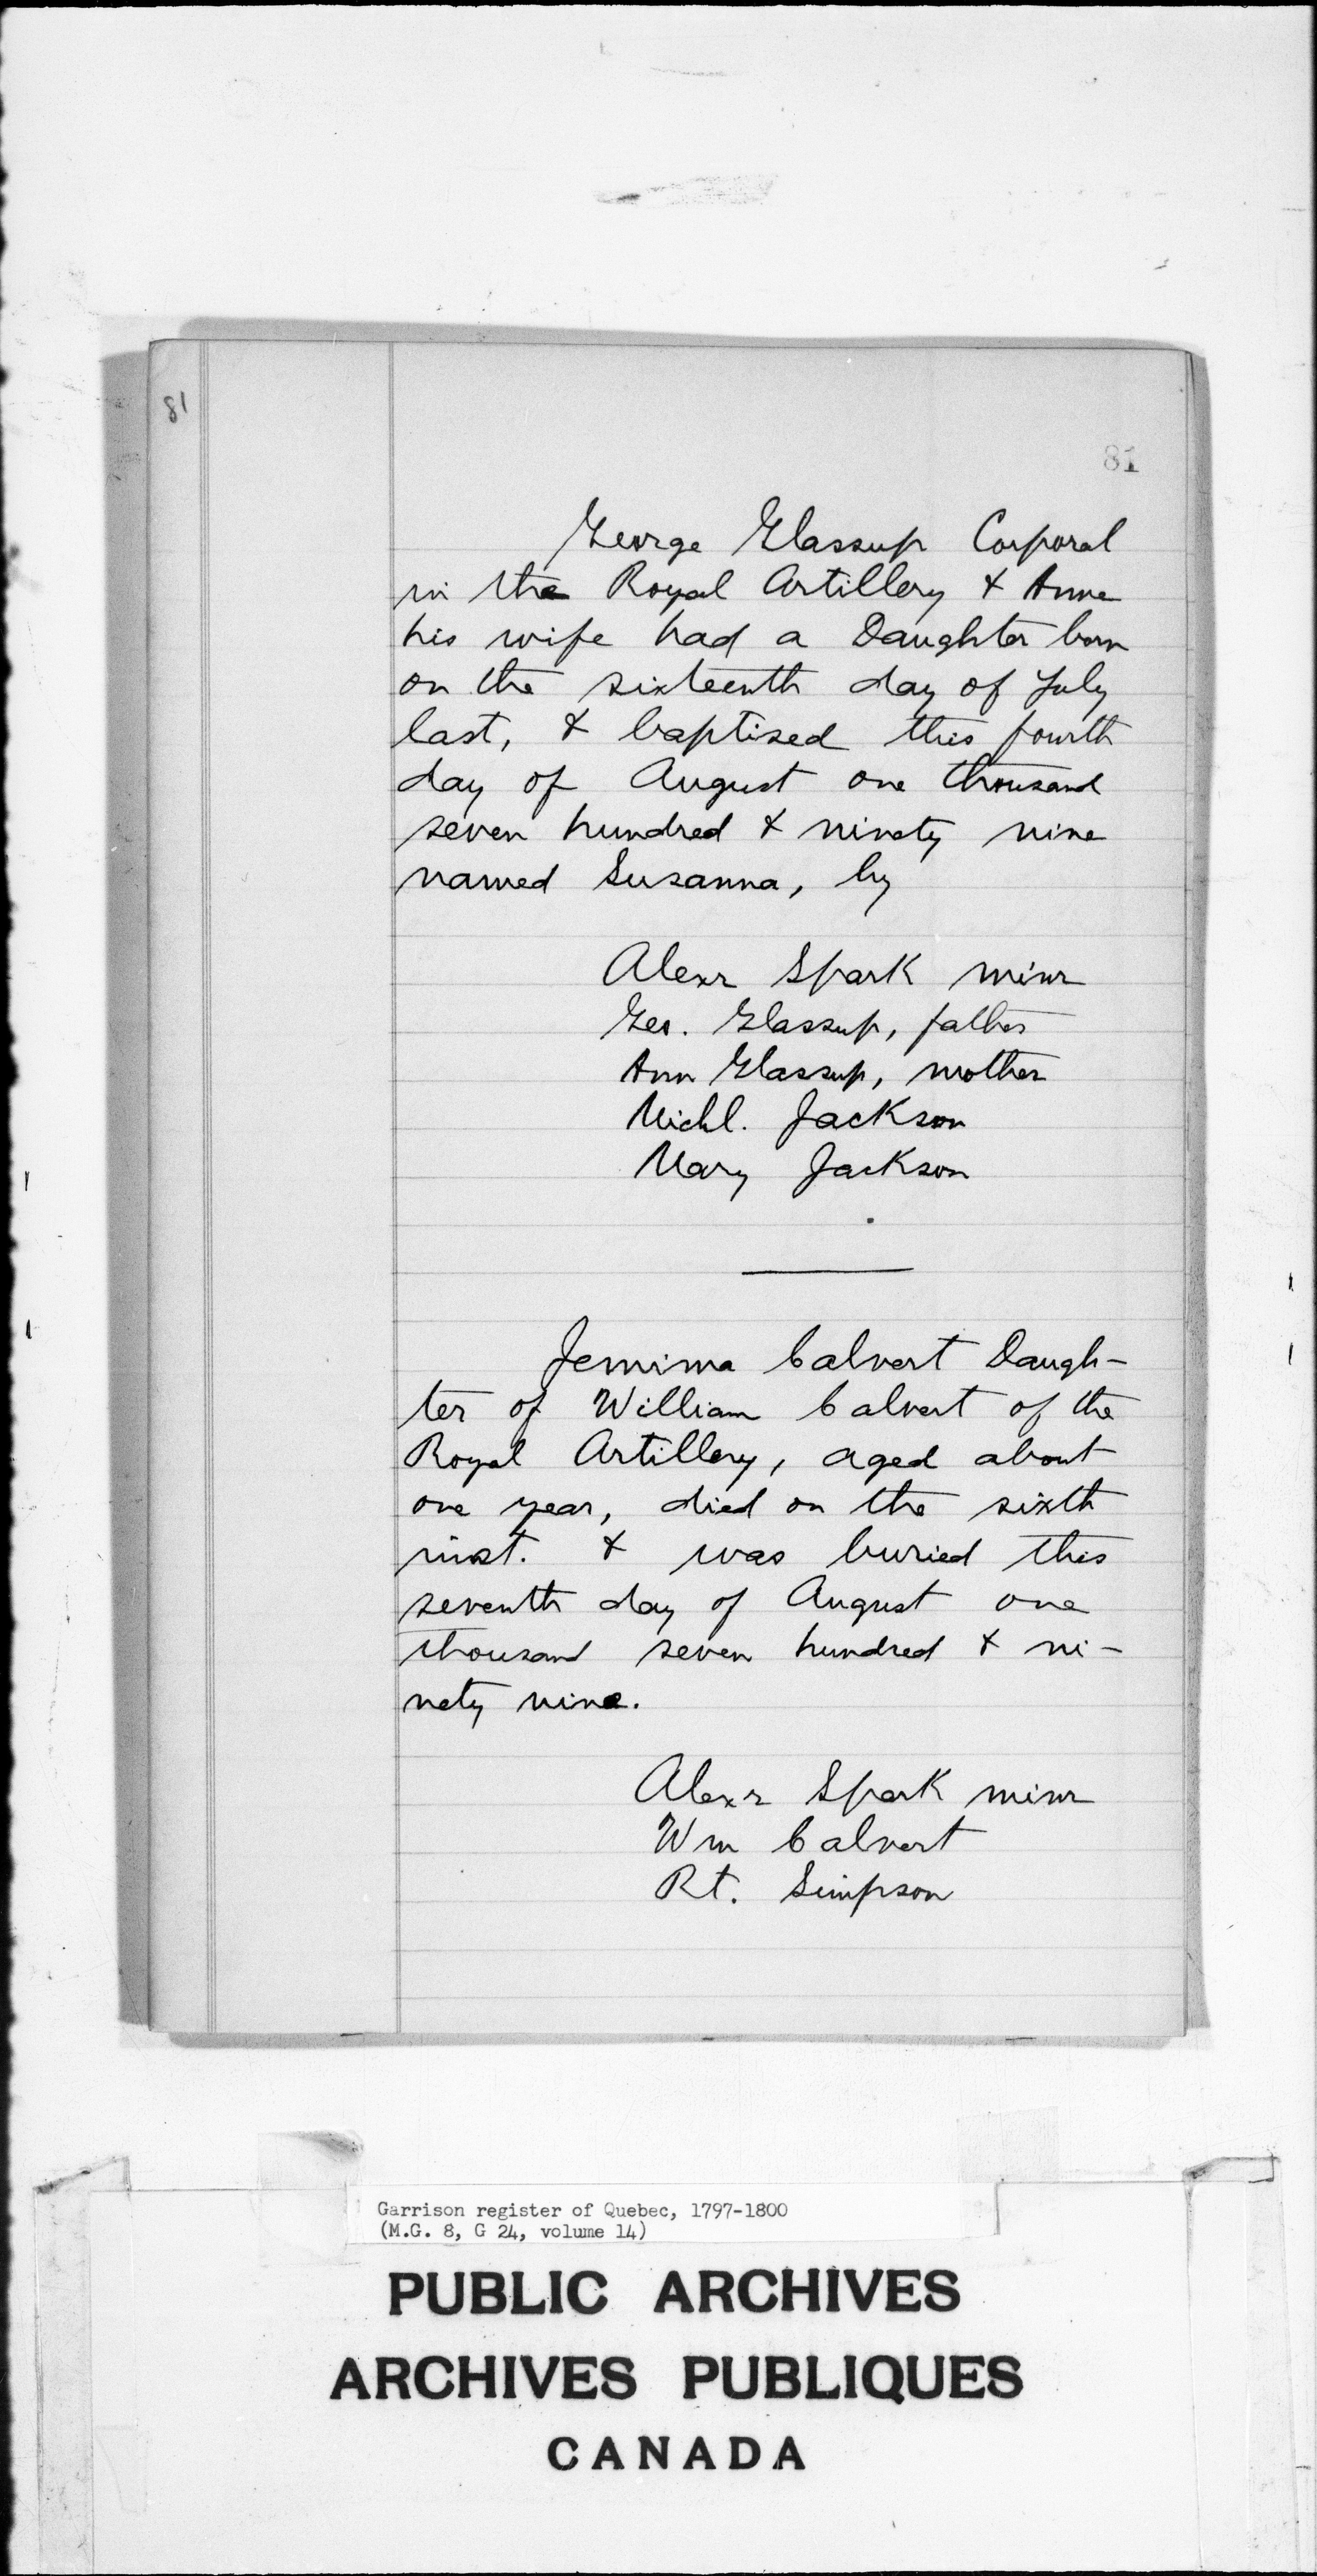 81
81
George Glassup Corporal
in the Royal Artillery & Anne
his wife had a Daughter born
on the sixteenth day of July
last, & baptised this fourth
day of August one thousand
seven hundred & ninety nine
named Susanna, by
Alexr Spark minr
Geo. Glassup, father
Ann Glassup, mother
Michl. Jackson
Mary Jackson
Jemima Calvert Daugh-
ter of William Calvert of the
Royal Artillery, aged about
one year, died on the sixth
inst. & was buried this
seventh day of August one
thousand seven hundred & ni-
nety nine.
Alexr Spark minr
Wm Calvert
Rt. Simpson
Garrison register of Quebec, 1797-1800
(M.G. 8, G 24, volume 14)
PUBLIC ARCHIVES
ARCHIVES PUBLIQUES
CANADA